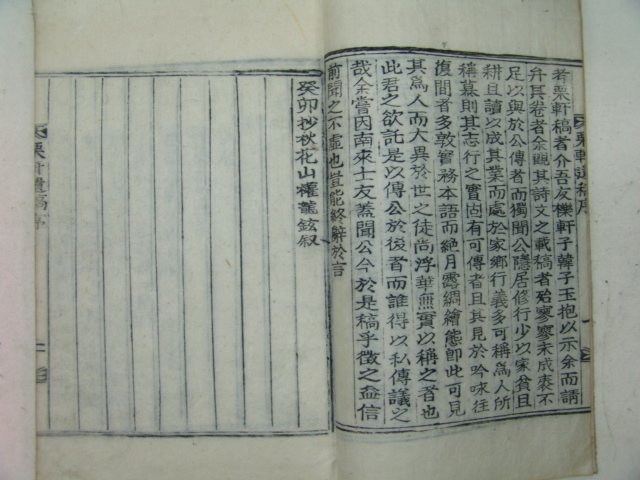 栗軒遺稿序
若栗軒稿者介吾友櫟軒子韓子玉抱以示余而請
弁其卷者余覸其詩文之載稿者殆寥寥未成袠不
足以與於公傳者而獨聞公隱居修行少以家貧且
耕且讀以成其業而處於家鄉行義多可稱爲人所
稱慕則其志行之實固有可傳者且其見於吟咏往
復間者多敦實務本語而絶月露綢繪態卽此可見
其爲人而大異於世之徒尚浮華無實以稱之者也
此君之欲託是以傳公於後者而誰得以私傳議之
哉余嘗因南來士友蓋聞公今於是稿乎徵之益信
前聞之不虛也豈能終辭於言
癸卯抄秋花山權龍鉉叙
栗軒遺稿序
一